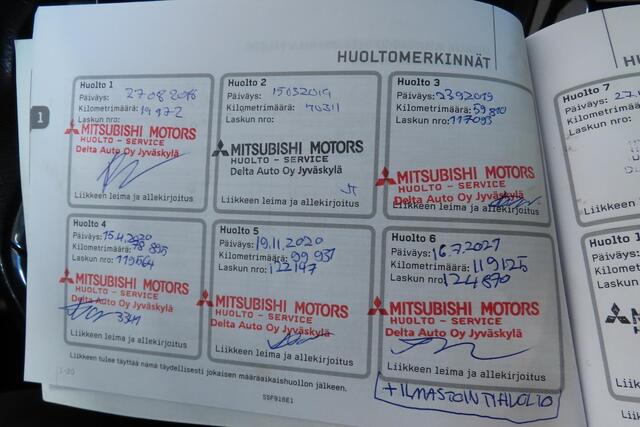 HUOLTOMERKINNÄT
1
Huolto 1
Päiväys: 27 08 2016
Kilometrimäärä: 19 972
Laskun nro:
MITSUBISHI MOTORS
HUOLTO - SERVICE
Delta Auto Oy Jyväskylä
Liikkeen leima ja allekirjoitus
Huolto 2
Päiväys: 15032019
Kilometrimäärä: 40311
Laskun nro:
MITSUBISHI MOTORS
HUOLTO - SERVICE
Delta Auto Oy Jyväskylä
Liikkeen leima ja allekirjoitus
Huolto 3
Päiväys: 2392019
Kilometrimäärä: 59 810
Laskun nro: 117093
MITSUBISHI MOTORS
HUOLTO - SERVICE
Delta Auto Oy Jyväskylä
Liikkeen leima ja allekirjoitus
Huolto 4
Päiväys: 15.4.2020
Kilometrimäärä: 78 895
Laskun nro: 119564
MITSUBISHI MOTORS
HUOLTO - SERVICE
Delta Auto Oy Jyväskylä
Liikkeen leima ja allekirjoitus
Huolto 5
Päiväys: 19.11.2020
Kilometrimäärä: 99 931
Laskun nro: 122147
MITSUBISHI MOTORS
HUOLTO - SERVICE
Delta Auto Oy Jyväskylä
Liikkeen leima ja allekirjoitus
Huolto 6
Päiväys: 16.7.2021
Kilometrimäärä: 119125
Laskun nro: 124870
MITSUBISHI MOTORS
HUOLTO - SERVICE
Delta Auto Oy Jyväskylä
Liikkeen leima ja allekirjoitus
+ILMASTOINTIHUOLTO
Liikkeen tulee täyttää nämä täydellisesti jokaisen määräaikaishuollon jälkeen.
1-20
SSF916E1
Huolto 7
Päiväys: 27.
Kilometrimäärä:
Laskun nro:
Liikkeen
Kilometri
Laskun n
Liikkeen